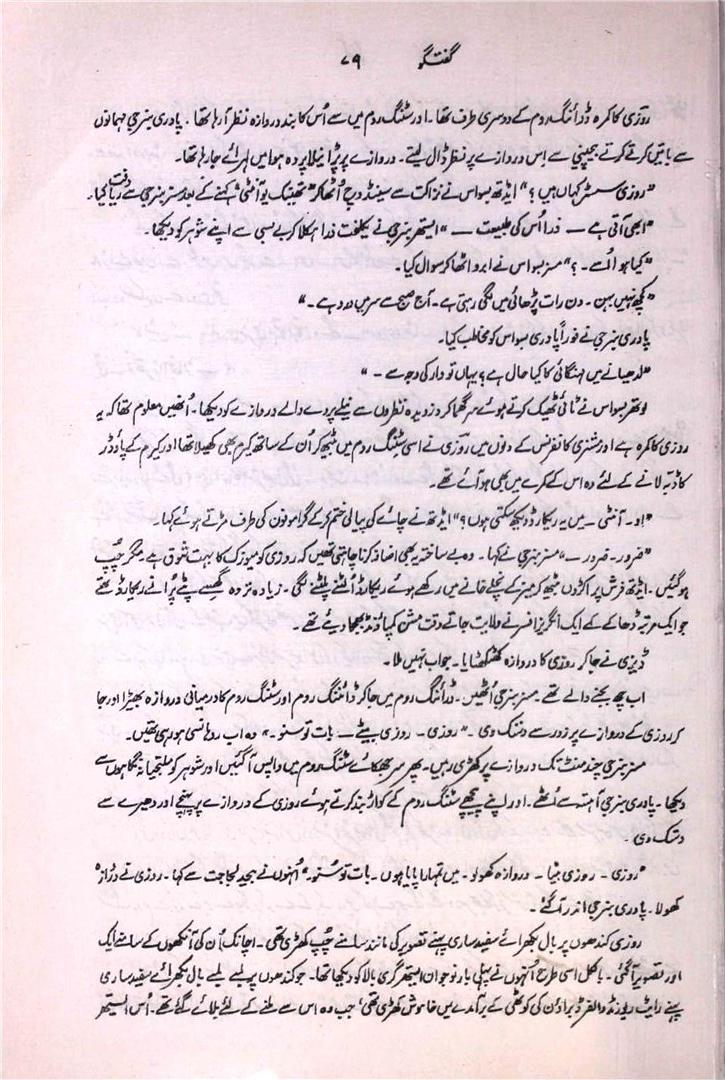 گفتگو ۷۹
روزی کا کمرہ ڈرائنگ روم کے دوسری طرف تھا۔ اور سٹنگ روم میں سے اُس کا بند دروازہ نظر آ رہا تھا۔ پادری بنرجی مہمانوں
سے باتیں کرتے کرتے بے چینی سے اس دروازے پر نظر ڈال لیتے۔ دروازے پر پڑا نیلا پردہ ہوا میں لہرائے جا رہا تھا۔
"روزی سسٹر کہاں ہیں؟" ایڈتھ بسواس نے نزاکت سے سینڈوچ اُٹھا کر "تھینک یو آنٹی" کہنے کے بعد مسز بنرجی سے دریافت کیا۔
"ابھی آتی ہے — ذرا اُس کی طبیعت —" ایستھر بنرجی نے یکلخت ذرا ہکلا کر بے بسی سے اپنے شوہر کو دیکھا۔
"کیا ہوا اُسے۔ ؟" مسز بسواس نے ابرو اٹھا کر سوال کیا۔
"کچھ نہیں بہن۔ دن رات پڑھائی میں لگی رہتی ہے۔ آج صبح سے سر میں درد ہے۔"
پادری بنرجی نے فوراً پادری بسواس کو مخاطب کیا۔
"لدھیانے میں مہنگائی کا کیا حال ہے؟ یہاں تو وار کی وجہ سے —"
لوتھر بسواس نے ٹائی ٹھیک کرتے ہوئے سر گھما کر دزدیدہ نظروں سے نیلے پردے والے دروازے کو دیکھا۔ اُنھیں معلوم تھا کہ یہ
روزی کا کمرہ ہے اور مشنری کانفرنس کے دنوں میں روزی نے اسی سٹنگ روم میں بیٹھ کر اُن کے ساتھ کیرم بھی کھیلا تھا اور کیرم کے پاؤڈر
کا ڈبّہ لانے کے لئے وہ اس کے کمرے میں بھی ہو آئے تھے۔
"او۔ آنٹی۔ میں یہ ریکارڈ دیکھ سکتی ہوں؟" ایڈتھ نے چائے کی پیالی ختم کر کے گراموفون کی طرف مڑتے ہوئے کہا۔
"ضرور۔ ضرور —" مسز بنرجی نے کہا۔ وہ بے ساختہ یہ بھی اضافہ کرنا چاہتی تھیں کہ روزی کو میوزک کا بہت شوق ہے مگر چُپ
ہو گئیں۔ ایڈتھ فرش پر اکڑوں بیٹھ کر میز کے نچلے خانے میں رکھے ہوئے ریکارڈ اُلٹنے پلٹنے لگی۔ زیادہ تر وہ گھسے پٹے پُرانے ریکارڈ تھے
جو ایک مرتبہ ڈھاکے کے ایک انگریز افسر نے ولایت جاتے وقت مشن کمپاؤنڈ بھجوا دیئے تھے۔
ڈیزی نے جا کر روزی کا دروازہ کھٹکھٹایا۔ جواب نہیں ملا۔
اب چھ بجنے والے تھے۔ مسز بنرجی اُٹھیں۔ ڈرائنگ روم میں جا کر ڈائننگ روم اور سٹنگ روم کا درمیانی دروازہ بھیڑا اور جا
کر روزی کے دروازے پر زور سے دستک دی۔ "روزی۔ روزی بیٹے — بات تو سنو۔" وہ اب روہانسی ہو رہی تھیں۔
مسز بنرجی چند منٹ تک دروازے پر کھڑی رہیں۔ پھر سر جھکائے سٹنگ روم میں واپس آ گئیں اور شوہر کو ملتجیانہ نگاہوں سے
دیکھا۔ پادری بنرجی آہستہ سے اُٹھے۔ اور اپنے پیچھے سٹنگ روم کے کواڑ بند کرتے ہوئے روزی کے دروازے پر پہنچے اور دھیرے سے
دستک دی۔
"روزی۔ روزی بیٹا۔ دروازہ کھولو۔ میں تمہارا پاپا ہوں۔ بات تو سُنو۔" اُنہوں نے بیحد لجاجت سے کہا۔ روزی نے دروازہ
کھولا۔ پادری بنرجی اندر آ گئے۔
روزی کندھوں پر بال بکھرائے سفید ساری پہنے تصویر کی مانند سامنے چُپ کھڑی تھی۔ اچانک اُن کی آنکھوں کے سامنے ایک
اور تصویر آ گئی۔ بالکل اسی طرح اُنہوں نے پہلی بار نوجوان ایستھر گری بالا کو دیکھا تھا۔ جو کندھوں پر لمبے لمبے بال بکھرائے سفید ساری
پہنے رائٹ ریورنڈ والفرڈ براؤن کی کوٹھی کے برآمدے میں خاموش کھڑی تھی، جب وہ اس سے ملنے کے لئے بلائے گئے تھے۔ اُس ایستھر